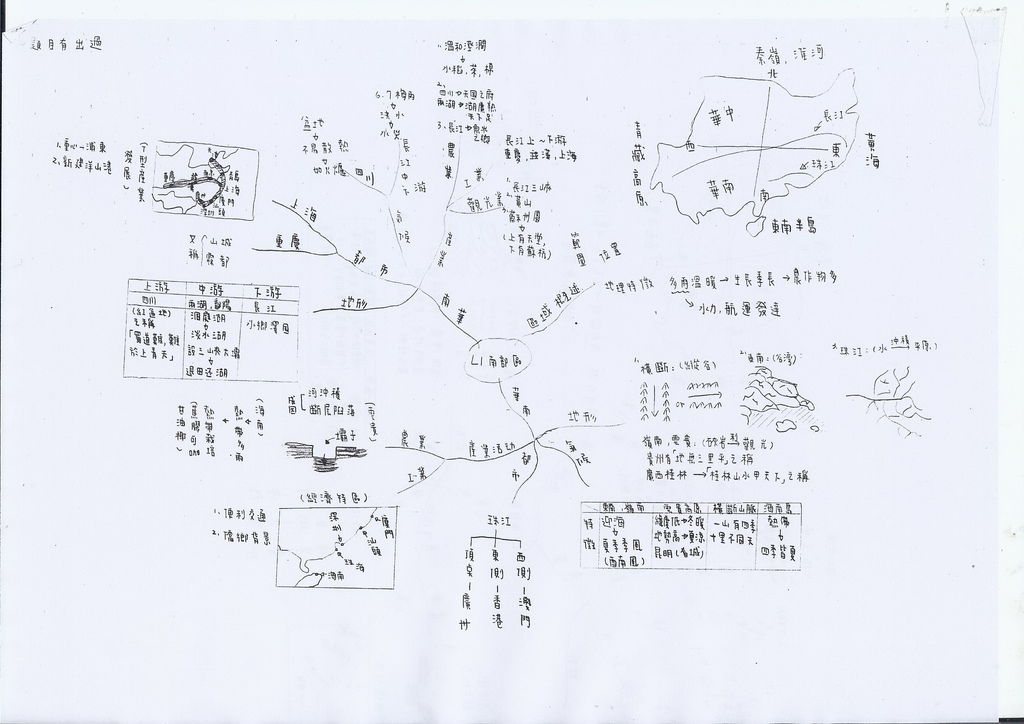 題目有出過
1、溫和溼潤
水稻,茶,棉
2、四川⇨天國之府
兩湖⇨湖廣熟
天下足
3、長江⇨魚米
之鄉
6.7梅雨
洪水
水災
盆地
不易散熱
如火爐
四川
長江中下游
氣候
農業
工業
長江上~下游
重慶,武漢,上海
觀光業
1、長江三峽
2、黃山
3、蘇州園
(上有天堂,
下有蘇杭)
產業
1、重心—浦東
2、新建洋山港
(T型產業發展)
重慶
上海
廈門
上海
重慶
又稱
山城
霧都
都市
地形
南華
上游
中游
下游
四川
兩湖,鄱陽
長江
(紅盆地)
之稱
「蜀道難,難
於上青天」
洞庭湖
淡水湖
設三峽大壩
退田還湖
水鄉澤國
L1南部區
區域概述
範圍
位置
地理特徵
多雨溫暖→生長季長→農作物多
水力,航運發達
秦嶺,淮河
北
華中
長江
西
東
青藏高原
黃海
珠江
華南
南
東南半島
華南
地形
1、橫斷:(縱谷)
or
2、東南:(谷灣):
3、珠江:(水沖積平原)
嶺南,雲貴:(砂岩型觀光)
貴州有「地無三里平」之稱
廣西桂林→「桂林山水甲天下」之稱
氣候
特徵
東南,嶺南
雲貴高原
橫斷山脈
海南島
迎海
夏季季風
(西南風)
緯度低⇨冬暖
地勢高⇨夏涼
昆明(春城)
一山有四季
十里不同天
熱帶
四季皆夏
都市
珠江
頂点—廣州
東側—香港
西側—澳門
產業活動
農業
(雲貴)
成因
河沖積
斷層陷落
壩子
(海南)
熱帶多雨
熱帶栽培
甘海椰
工業
(經濟特區)
1、便利交通
2、僑鄉背景
深圳
廈門
汕頭
珠海
海南